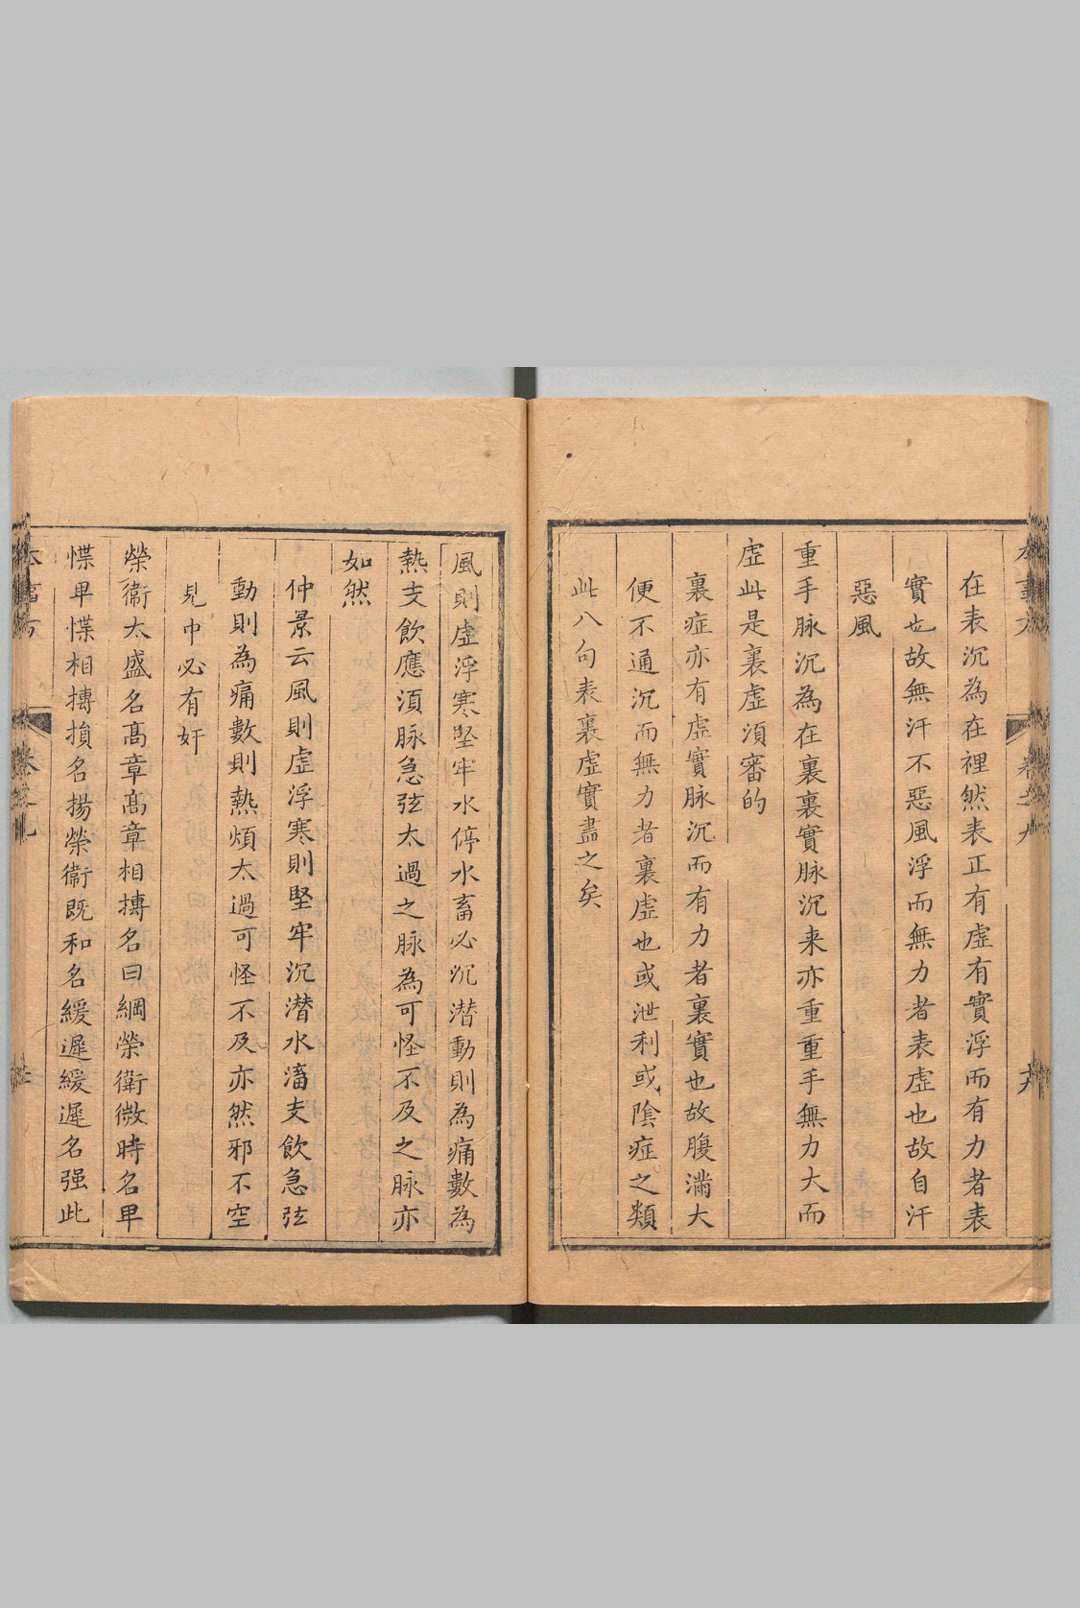 在表沉為在裡然表正有虛有實浮而有力者表
實也故無汗不惡風浮而無力者表虛也故自汗
惡風
重手脉沉為在裏裏實脉沉来亦重重手無力大而
虛此是裏虛須審的
裏症亦有虛實脉沉而有力者裏實也故腹滿大
便不通沉而無力者裏虛也或泄利或陰症之類
此八句表裏虛實盡之矣
風則虛浮寒堅牢水停水畜必沉潜動則為痛數為
熱支飲應須脉急弦太過之脉為可怪不及之脉亦
如然
仲景云風則虛浮寒則堅牢沉潜水滀支飲急弦
動則為痛數則熱煩太過可怪不及亦然邪不空
見中必有奸
榮衛太盛名髙章髙章相摶名曰綱榮衛微時名卑
惵卑惵相摶損名揚榮衛既和名緩遲緩遲名强此